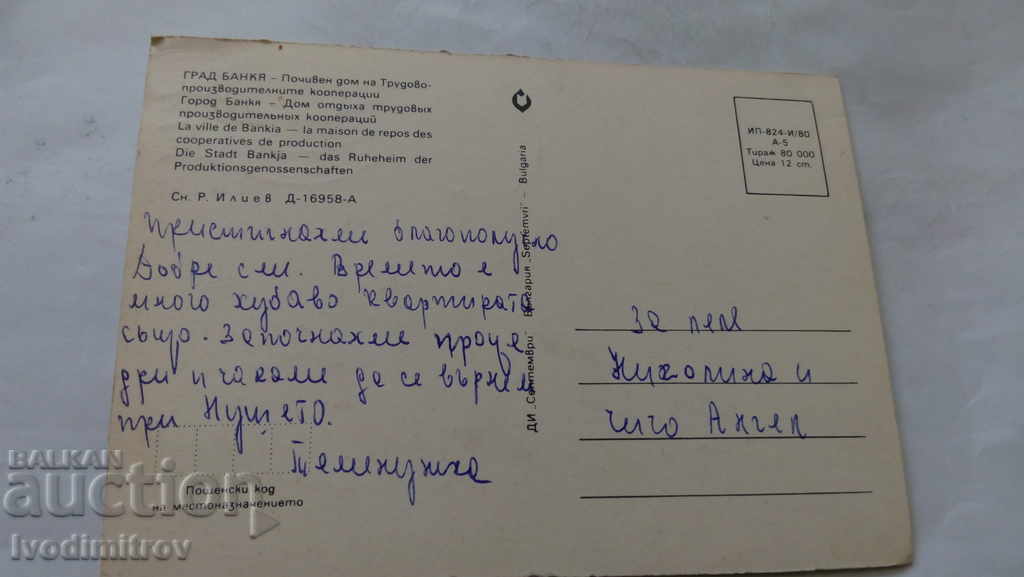 ГРАД БАНКЯ – Почивен дом на Трудово-
производителните кооперации
Город Банкя – Дом отдыха трудовых
производительных коопераций
La ville de Bankia — la maison de repos des
cooperatives de production
Die Stadt Bankja — das Ruheheim der
Produktionsgenossenschaften
Сн. Р. Илиев Д-16958-А
Пристигнахми благополучно
Добре сми. Времито е
много хубаво квартирата
също. Започнахме проце
дри и чакаме да се върнем
при Нушето.
Теменужка
Пощенски код
на местоназначението
ДИ „Септември" България „Septemvri" – Bulgaria
ИП-824-И/80
А-5
Тираж 80 000
Цена 12 ст.
За леля
Николина и
чичо Ангел
BALKAN
auction
Ivodimitrov